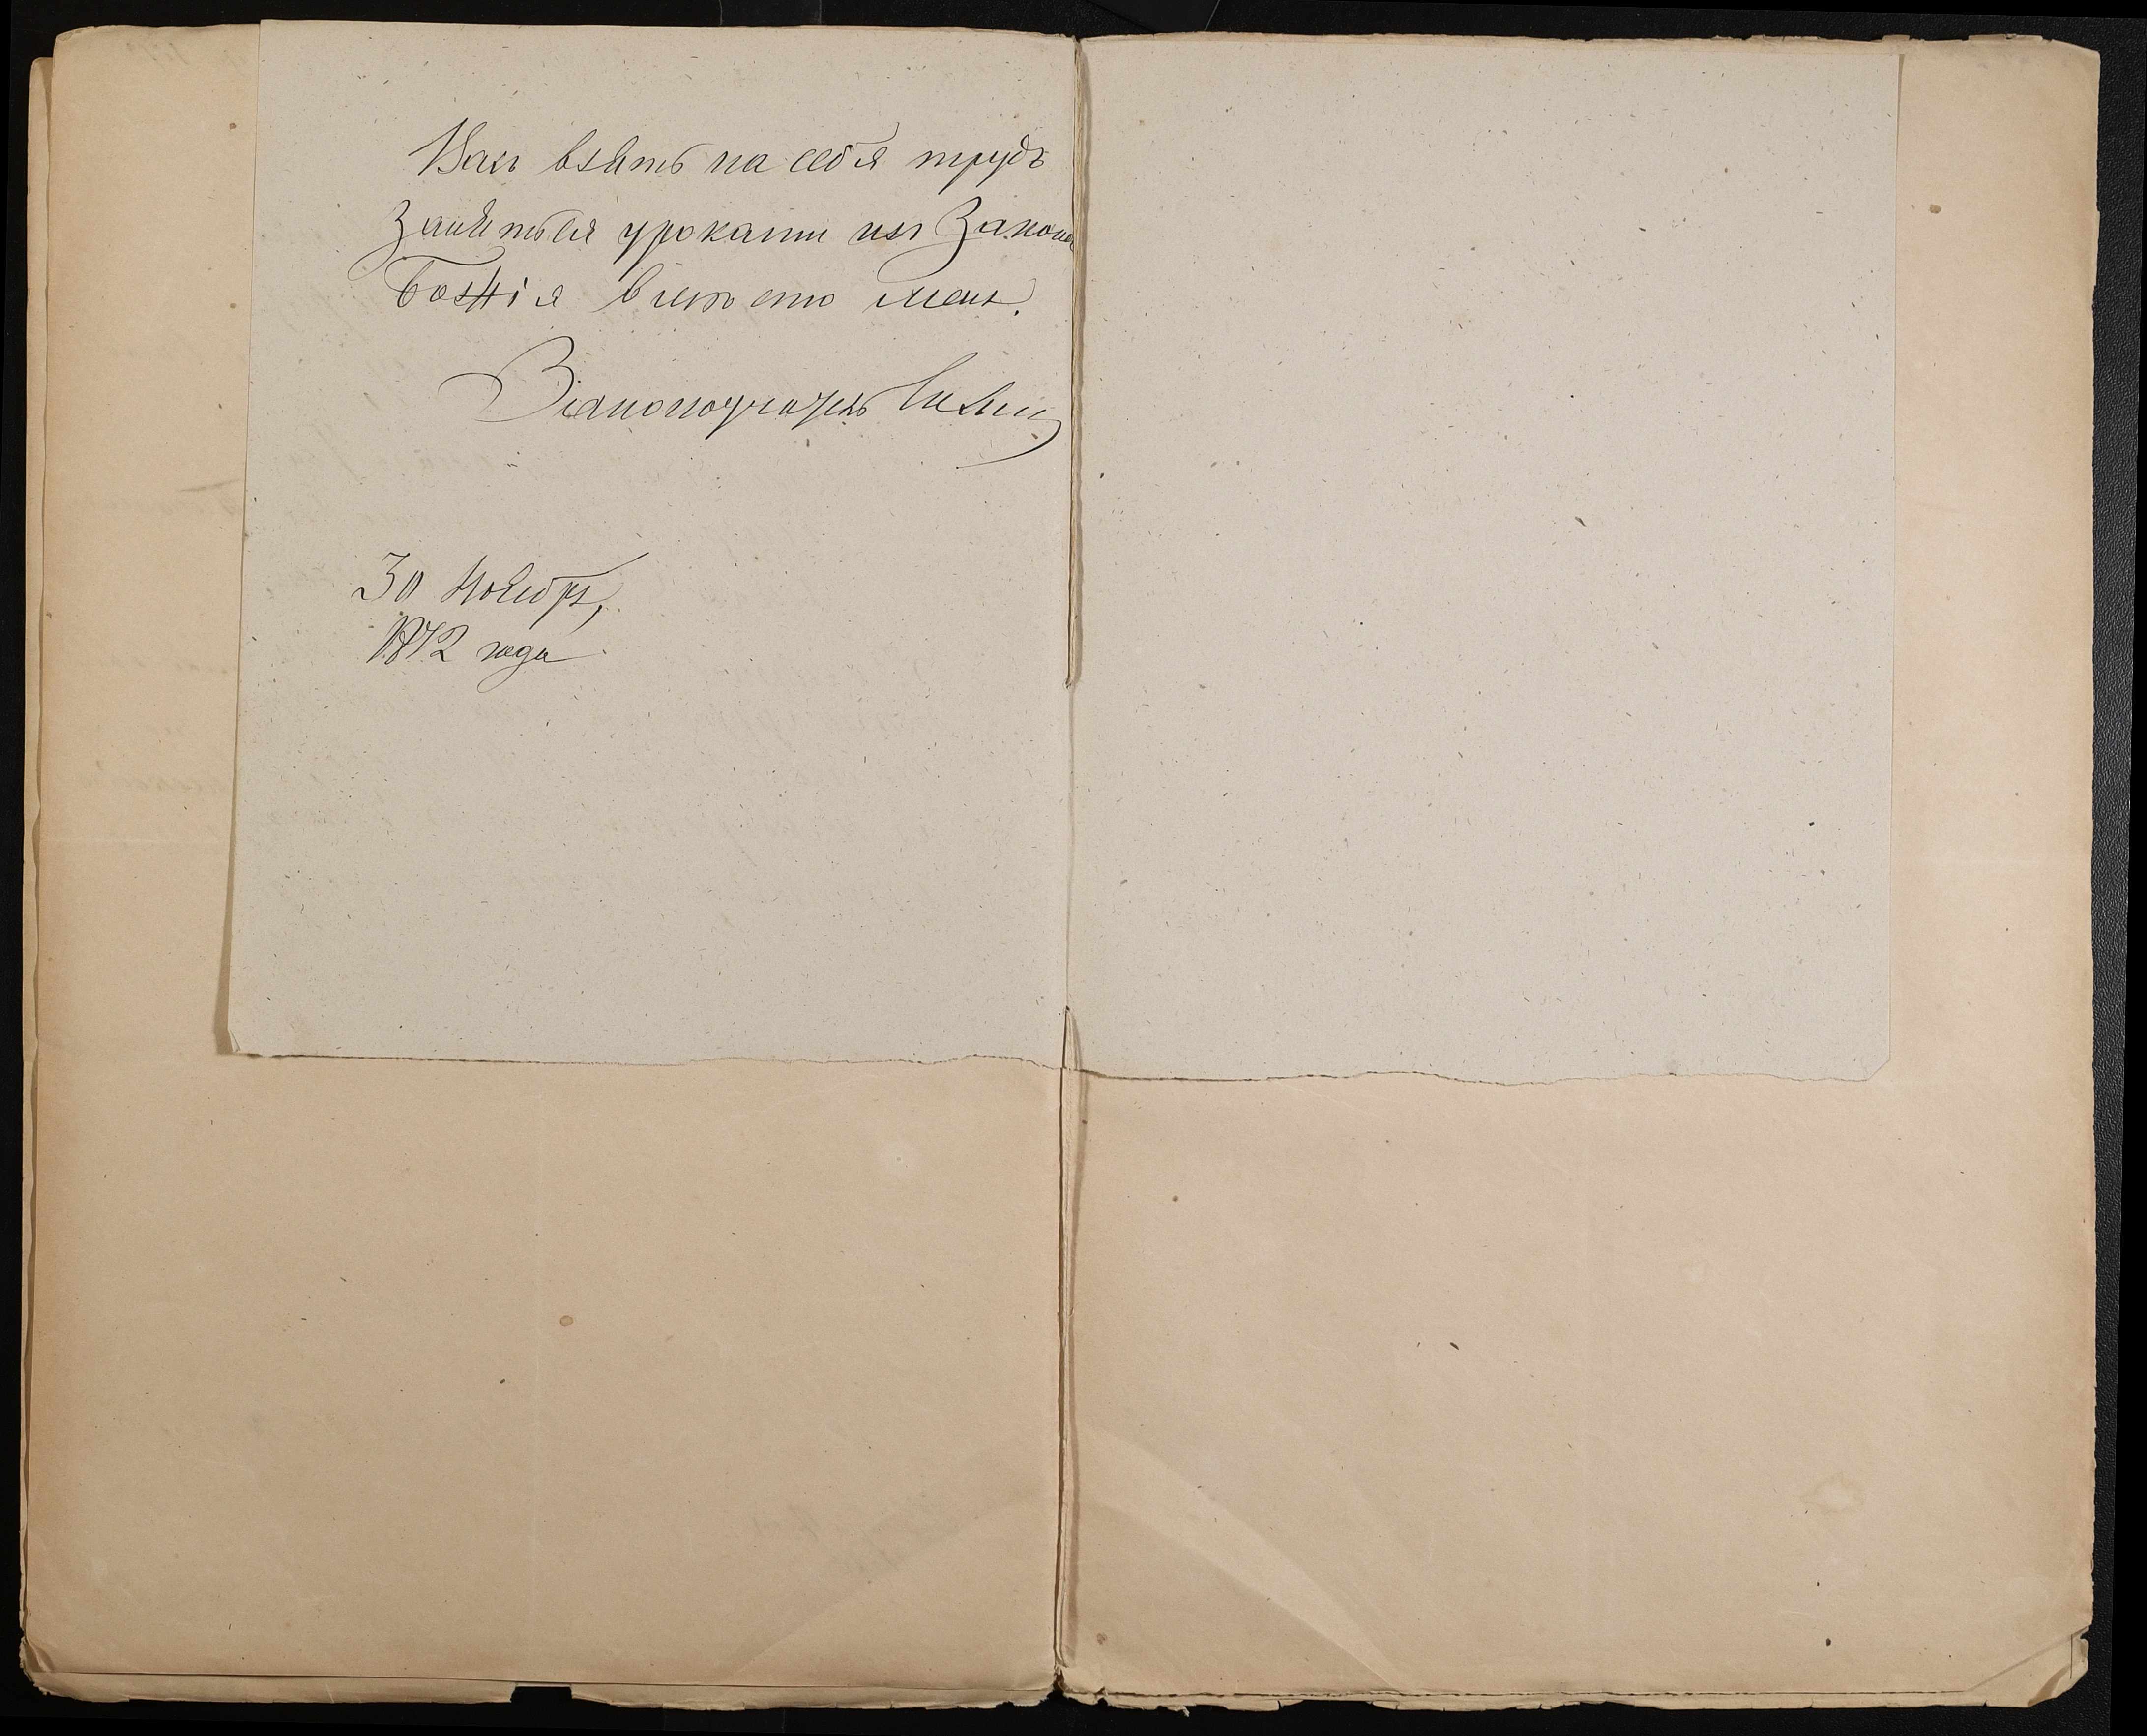 Васъ взять на себя трудъ
заняться уроками изъ Закона
Божія вмѣсто меня.
Законоучитель
30 Ноября,
1872 года